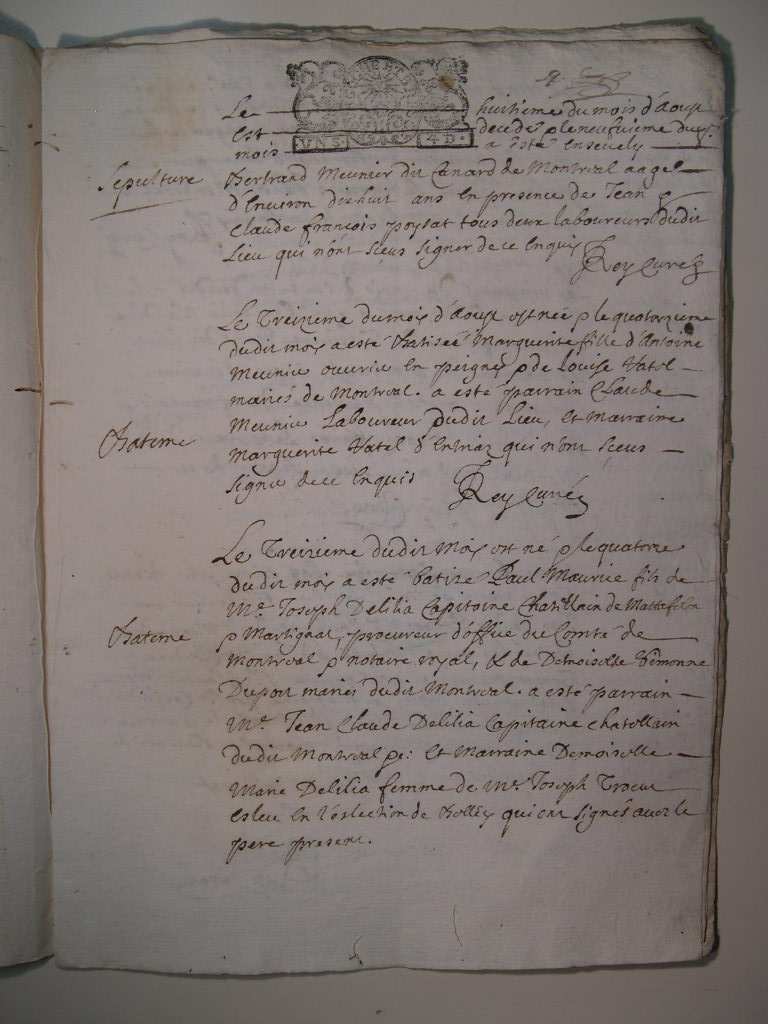 Le huitieme du mois d'Aoust
est decedé & le neufvieme dudit
mois a esté ensevely
Sepulture
Bertrand Meunier dit Canard de Montreal aagé
d'Environ dixhuit ans en presence de Jean &
Claude françois poysat tous deux laboureurs dudit
Lieu qui n'ont sceus signer de ce Enquis
Rey Curé
Le Treizieme du mois d'Aoust est née & le quatorzieme
dudit mois a esté Batisée Marguerite fille d'Antoine
Meunier ouvrier en peignes & de Louise Vatel
mariés de Montreal. a esté parrain Claude
Bateme
Meunier Laboureur dudit Lieu, et marraine
Marguerite Vatel qui n'ont sceus
signer de ce Enquis
Rey Curé
Le Treizieme dudit Mois est né & le quatorze
dudit mois a esté batizé Paul Maurice fils de
Mr. Joseph Delilia Capitaine Chatellain de Mattafelon
Bateme
& Martignat, procureur d'office du Comté de
Montreal & notaire royal, & de Demoiselle Pimonne
Duport mariés dudit Montreal. a esté parrain
Mr. Jean Claude Delilia Capitaine chatellain
dudit Montreal et Marraine Demoiselle
Marie Delilia femme de Mr Joseph
esleu en l'eslection de Belley qui ont signés avec le
pere present.